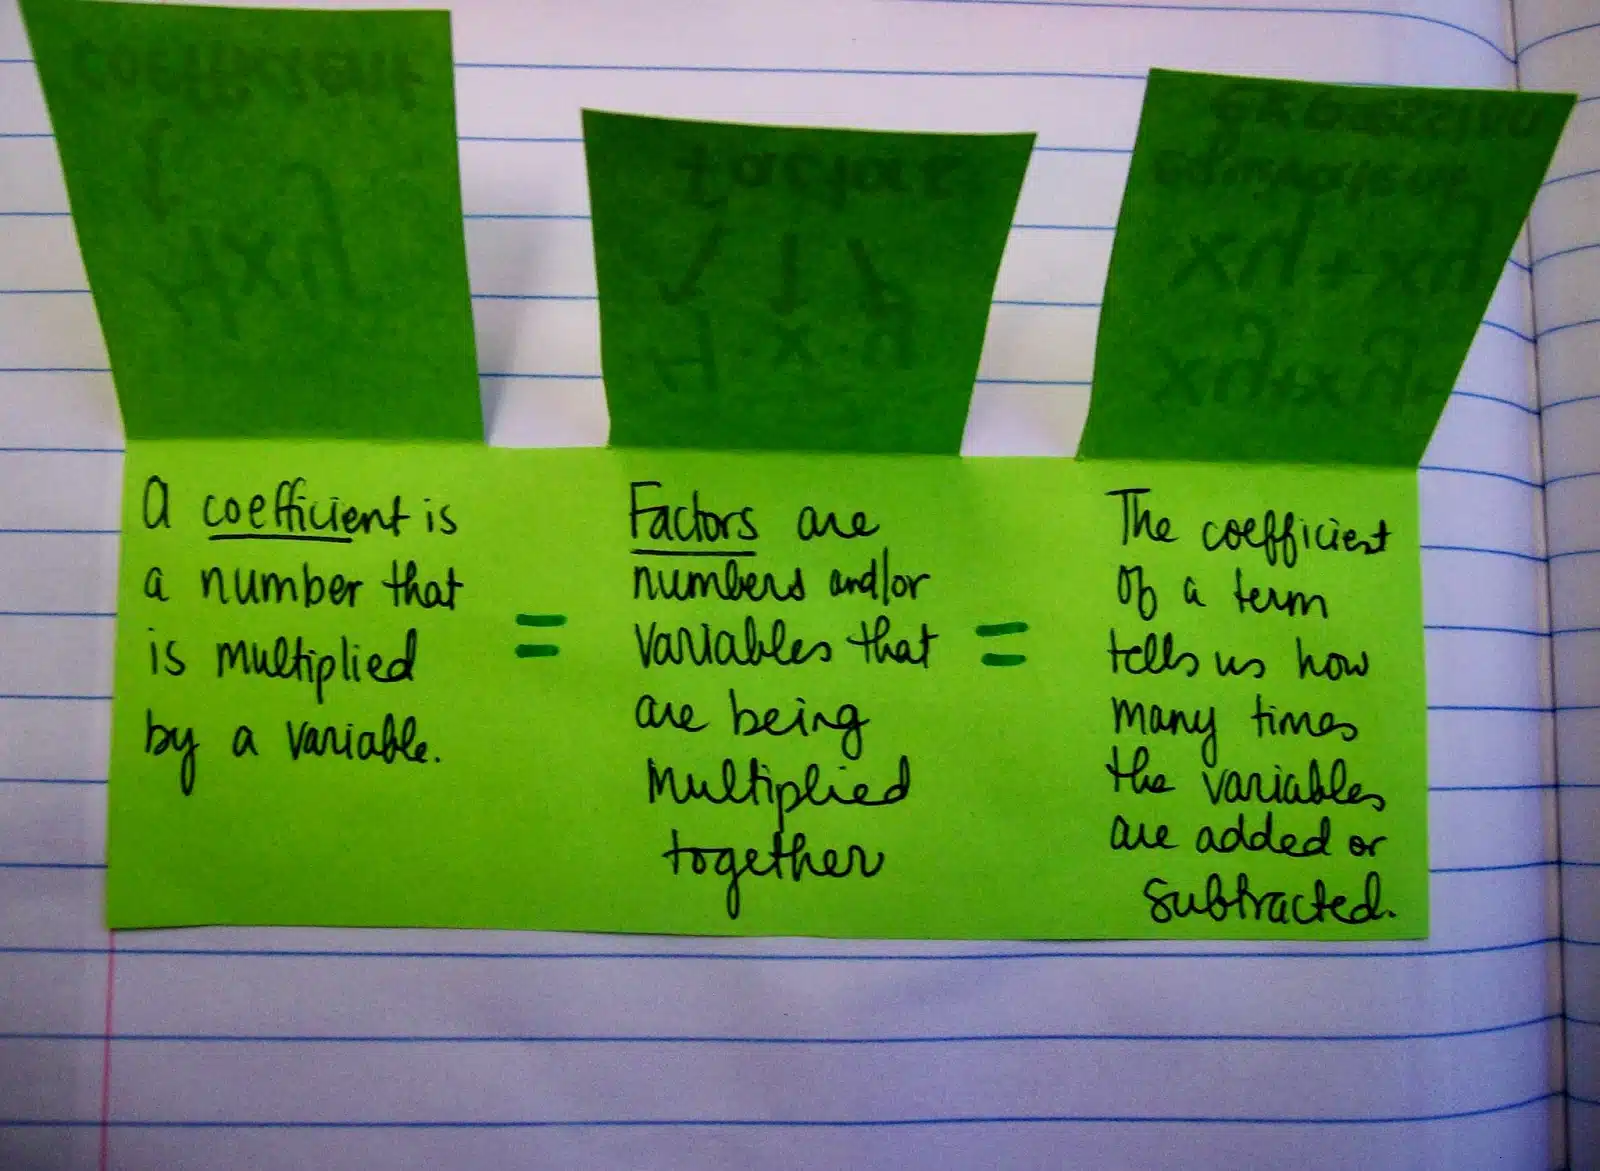 A coefficient is
a number that
is multiplied
by a variable.
=
Factors are
numbers and/or
variables that
are being
multiplied
together
=
The coefficient
of a term
tells us how
many times
the variables
are added or
subtracted.